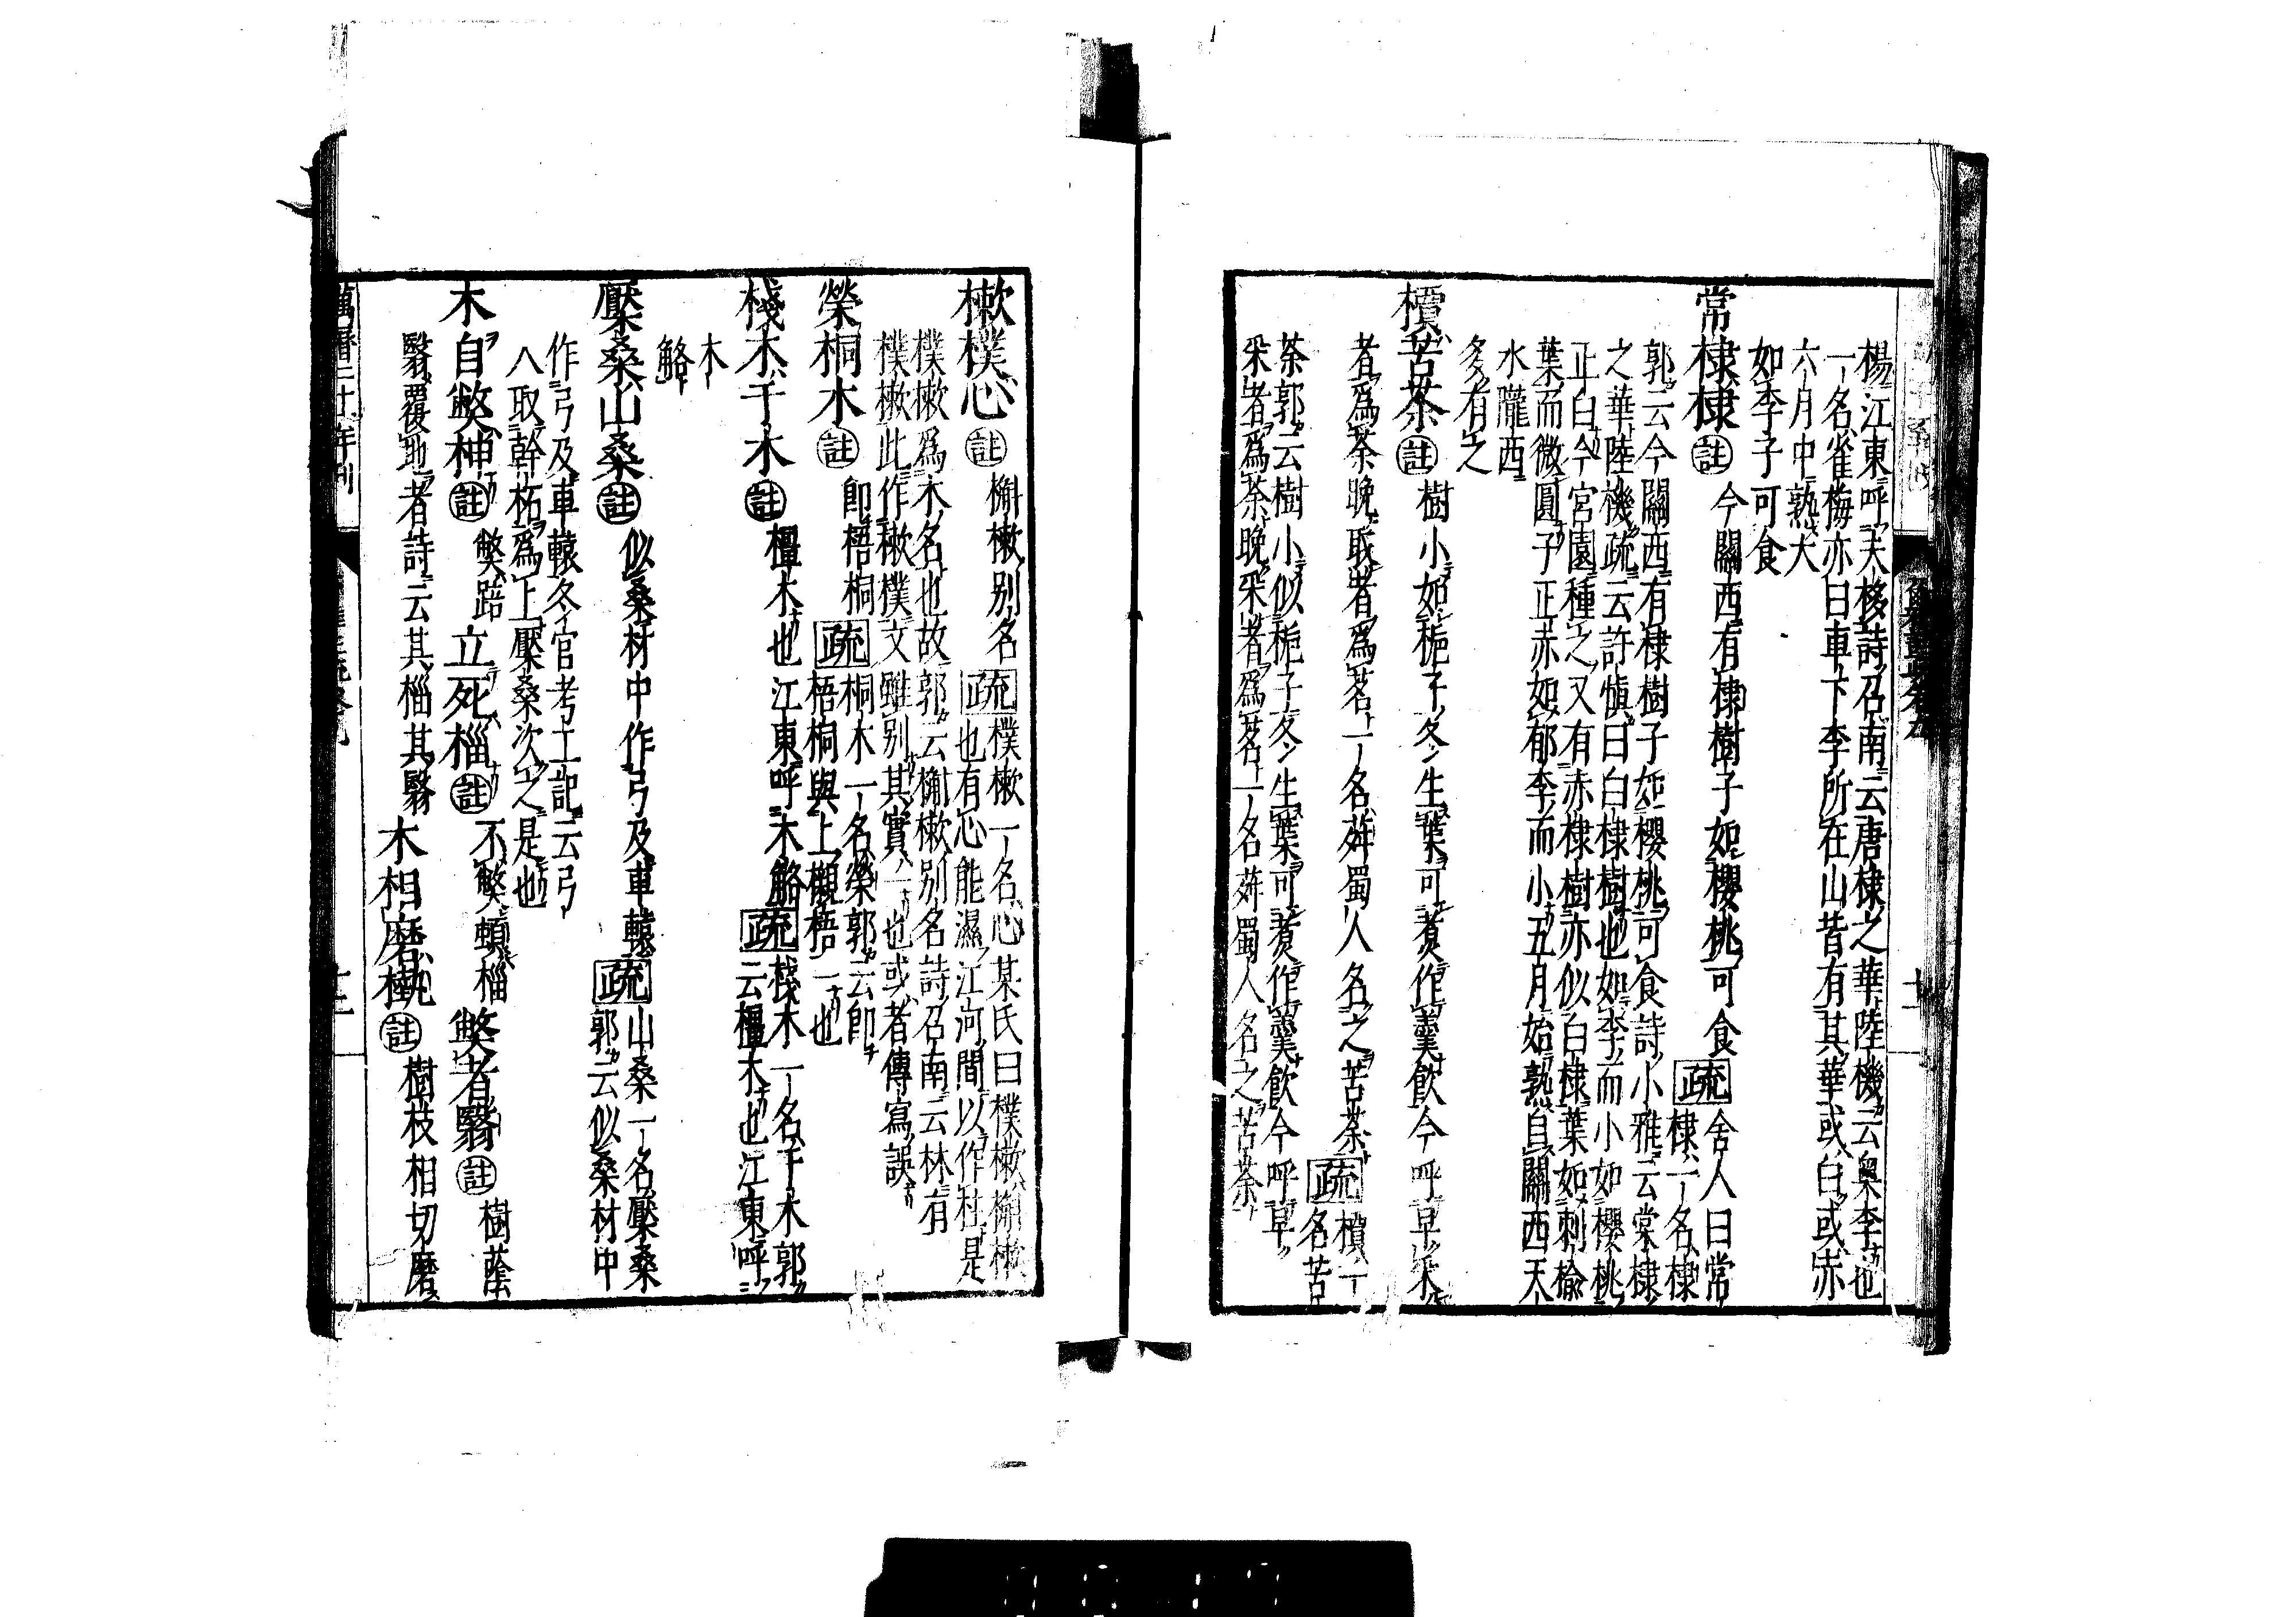 楊江東呼夫栘詩召南云唐棣之華陸機云奥李也
一名雀梅亦曰車下李所在山皆有其華或白或赤
六月中熟大
如李子可食
常棣棣註今關西有棣樹子如櫻桃可食疏舍人曰常
棣一名棣
郭云今關西有棣樹子如櫻桃可食詩小雅云常棣
之華陸機疏云許愼曰白棣樹也如李而小如櫻桃
正白今宮園種之又有赤棣樹亦似白棣葉如刺楡
葉而微圓子正赤如郁李而小五月始熟自關西天
水隴西
多有之
檟苦荼註樹小如梔子冬生葉可煑作羹飲今呼早采
者爲荼晚取者爲茗一名荈蜀人名之苦荼疏檟一
名苦
荼郭云樹小似梔子冬生葉可煑作羹飲今呼早
采者爲荼晚采者爲茗一名荈蜀人名之苦荼
樕樸心註槲樕別名疏樸樕一名心某氏曰樸樕槲樕
也有心能濕江河間以作柱是
樸樕爲木名也故郭云槲樕別名詩召南云林有
樸樕此作樕樸文雖別其實一也或者傳寫誤
榮桐木註即梧桐疏桐木一名榮郭云即
梧桐與上櫬梧一也
棧木干木註橿木也江東呼木觡疏棧木一名干木郭
云橿木也江東呼
木
觡
檿桑山桑註似桑材中作弓及車轅疏山桑一名檿桑
郭云似桑材中
作弓及車轅冬官考工記云弓
人取幹柘爲上檿桑次之是也
木自獘柛註獘踣立死椔註不獘頓椔獘者翳註樹蔭
翳覆地者詩云其椔其翳木相磨槸註樹枝相切磨
萬曆二十一年刊